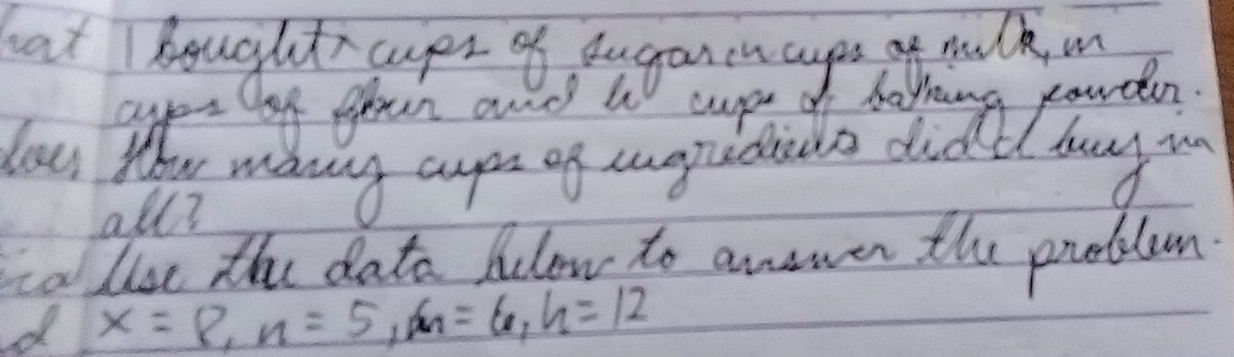 I bought x cups of sugar, n cups of milk, m
cups of flour and h cups of baking powder.
How many cups of ingredients did I buy in
all?
Use the data below to answer the problem.
x = 8, n = 5, m = 6, h = 12